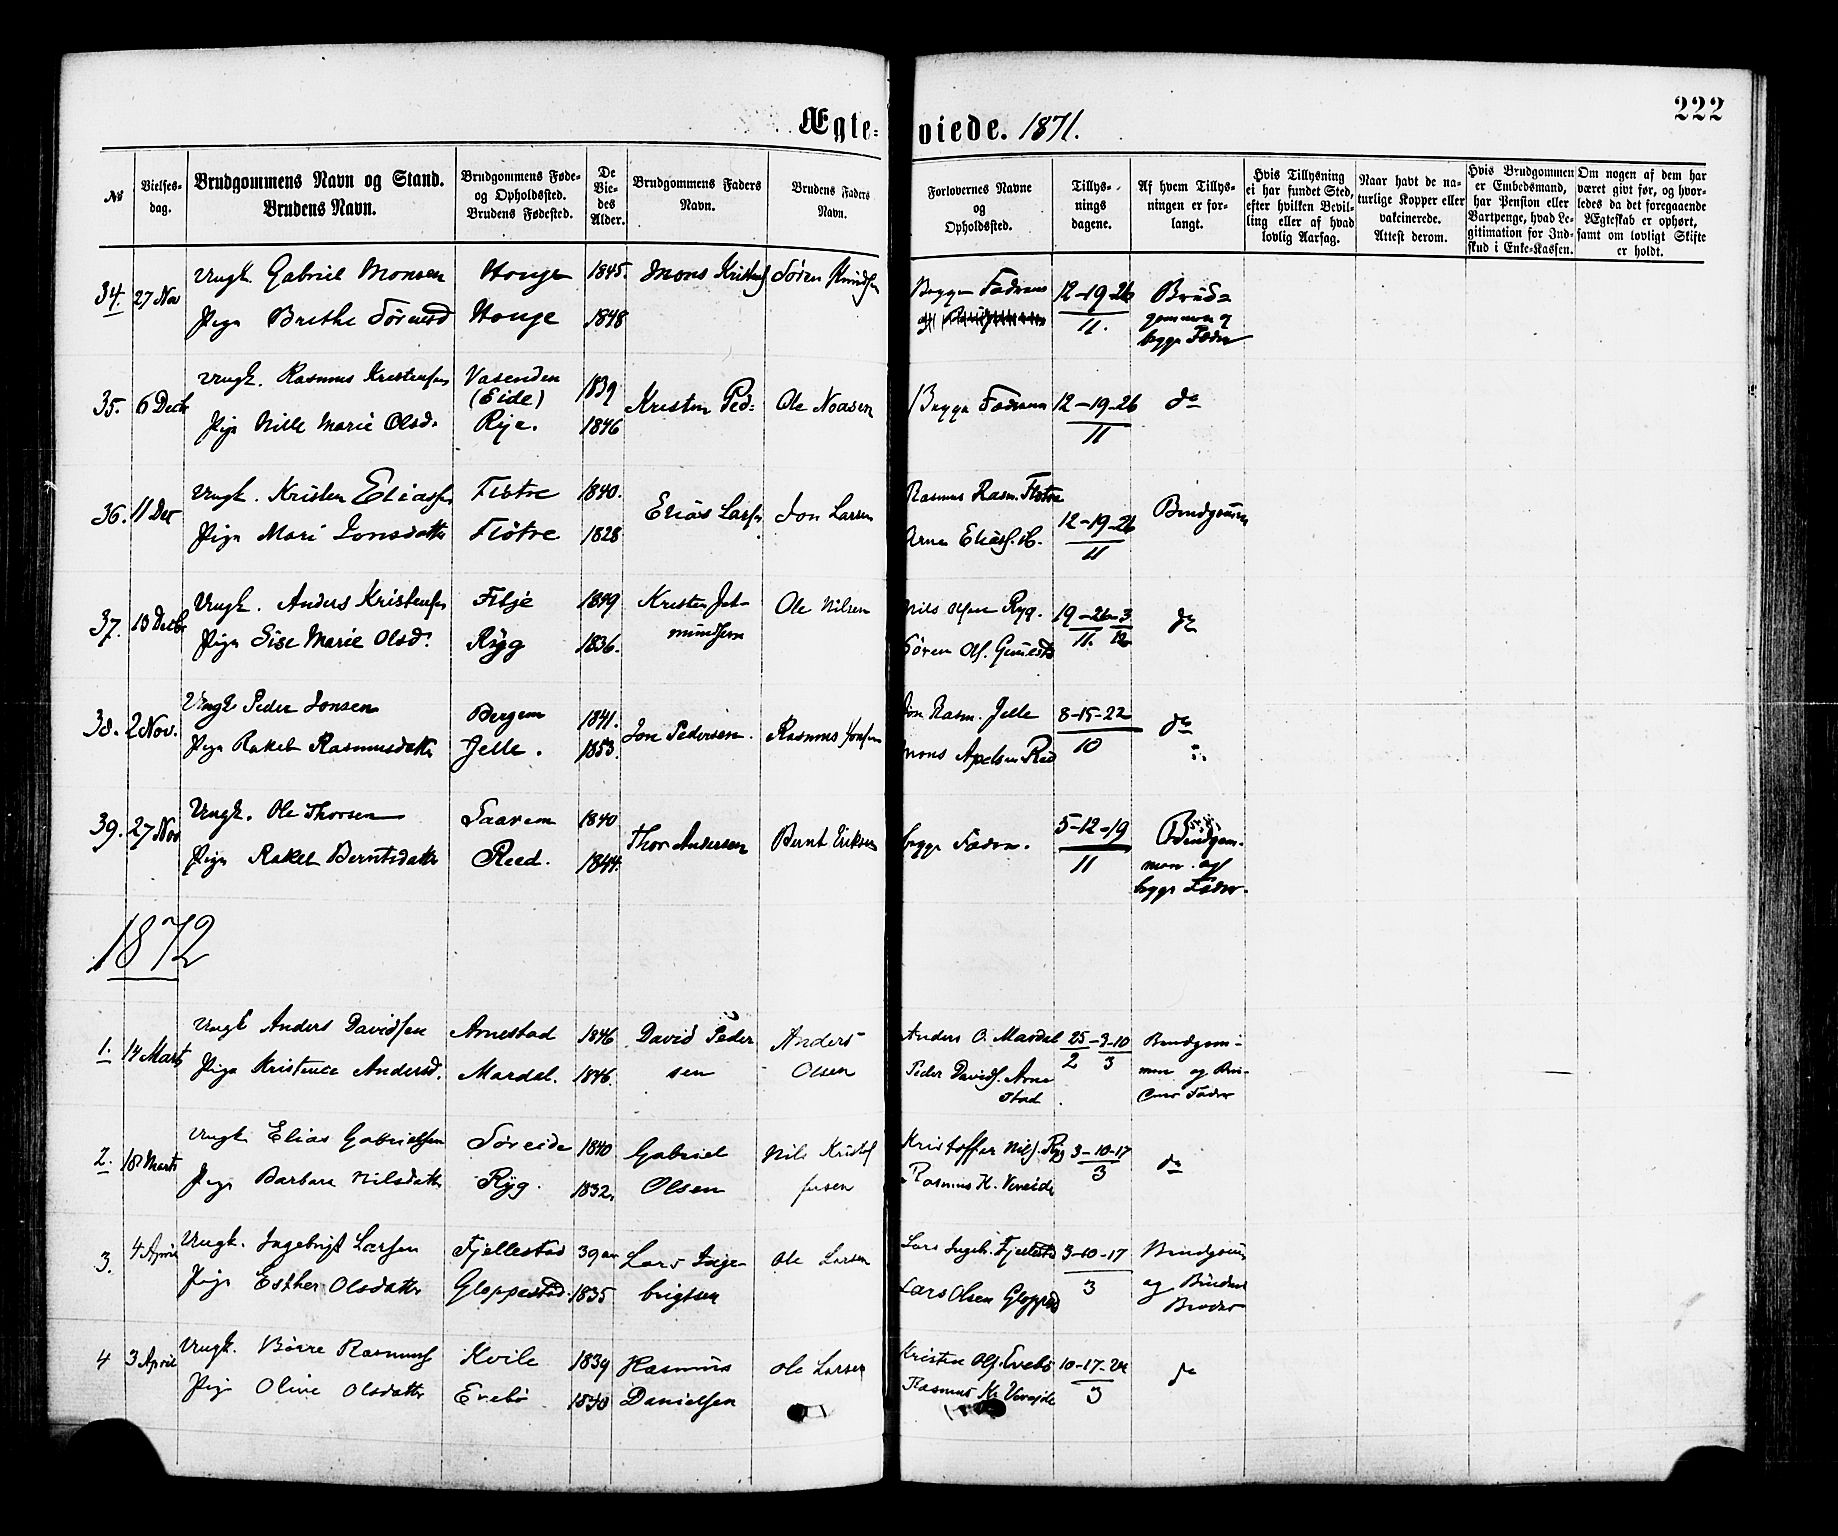 222
Ægteviede. 1871.
№
Vielsesdag.
Brudgommens Navn og Stand.
Brudens Navn.
Brudgommens Føde- og Opholdssted.
Brudens Fødested.
De Viedes Alder.
Brudgommens Faders Navn.
Brudens Faders Navn.
Forlovernes Navne og Opholdssted.
Tillysningsdagene.
Af hvem Tillysningen er forlangt.
Hvis Tillysning ei har fundet Sted, efter hvilken Bevilling eller af hvad lovlig Aarsag.
Naar havt de naturlige Kopper eller vakcinerede. Attest derom.
Hvis Brudgommen er Embedsmand, har Pension eller Vartpenge, hvad Legitimation for Indskud i Enke-Kassen.
Om nogen af dem har været givt før, og hvorledes da det foregaaende Ægteskab er ophørt, samt om lovligt Skifte er holdt.
34. 27 Nov Ungk. Gabriel Monsen Houge 1845. Mons Kristens Søren Knudsen Begges Fædrene 12-19-26 Brud-
Pige Brithe Sørensd Houge 1848 11. gommen og
begges Fædre
35. 6 Decb Ungk. Rasmus Kristensen Vasenden (Eide) 1839 Kristen Ped: Ole Noasen Begges Fædrene 12-19-26 do
Pige Nille Marie Olsd. Rye. 1846 11
36. 11 Dec Ungk. Kristen Eliassen Flötre 1840. Elias Larsen Jon Larsen Rasmus Rasm. Flötre 12-19-26 Brudgommen
Pige Mari Jonsdatter Flötre 1828 Arne Eliass. st. 11
37. 13 Decbr Ungk. Anders Kristensen Fitje 1849 Kristen Jet- Ole Nilsen Nils Olsen Ryg. 19-26-3 do
Pige Sise Marie Olsd. Ryg 1836. mundsen Søren Ols. 11. 12
38. 2 Nov. Ungk Peder Jonsen Bergem 1841. Jon Pedersen. Rasmus Jonsen Jon Rasm. Jelle 8-15-22 do
Pige Rakel Rasmusdatter Jelle. 1853. Mons Apelsen Reed 10
39. 27 Nov Ungk. Ole Thorsen Taarem 1840 Thor Andersen Bernt Eriksen begge Fædre. 5-12-19 Brudgom-
Pige Rakel Berntsdatter Reed. 1844. 11 men og
begges Fædre.
1872
1. 14 Marts Ungk Anders Davidsen Arnestad 1846 David Peder Anders Anders O. Mardal 25-3-10 Brudgom-
Pige Kristense Andersd. Mardal. 1846. sen Olsen Peder Davids. Arne 2 3 men og Bru-
stad dens Fader
2. 18 Marts Ungk Elias Gabrielsen Søreide 1840 Gabriel Nils Kristof Kristoffer Nils. Ryg 3-10-17 do
Pige Barbara Nilsdatter Ryg. 1832. Olsen fersen Rasmus K. Vereide 3
3. 4 April Ungk. Ingebrigt Larsen Fjellestad 39 aar Lars Inge Ole Larsen Lars Ingeb. Fjellestd 3-10-17 Brudgom
Pige Esther Olsdatter Gloppestad. 1835 brigtsen Lars Olsen Gloppest 3 og Brudens
Broder
4 3 April Ungk. Börre Rasmuss Kvile 1839 Rasmus Ole Larsen Kristen Ols. Evebö 10-17-24 do
Pige Oline Olsdatter Evebö 1840 Danielsen Rasmus Kr Vereide 3